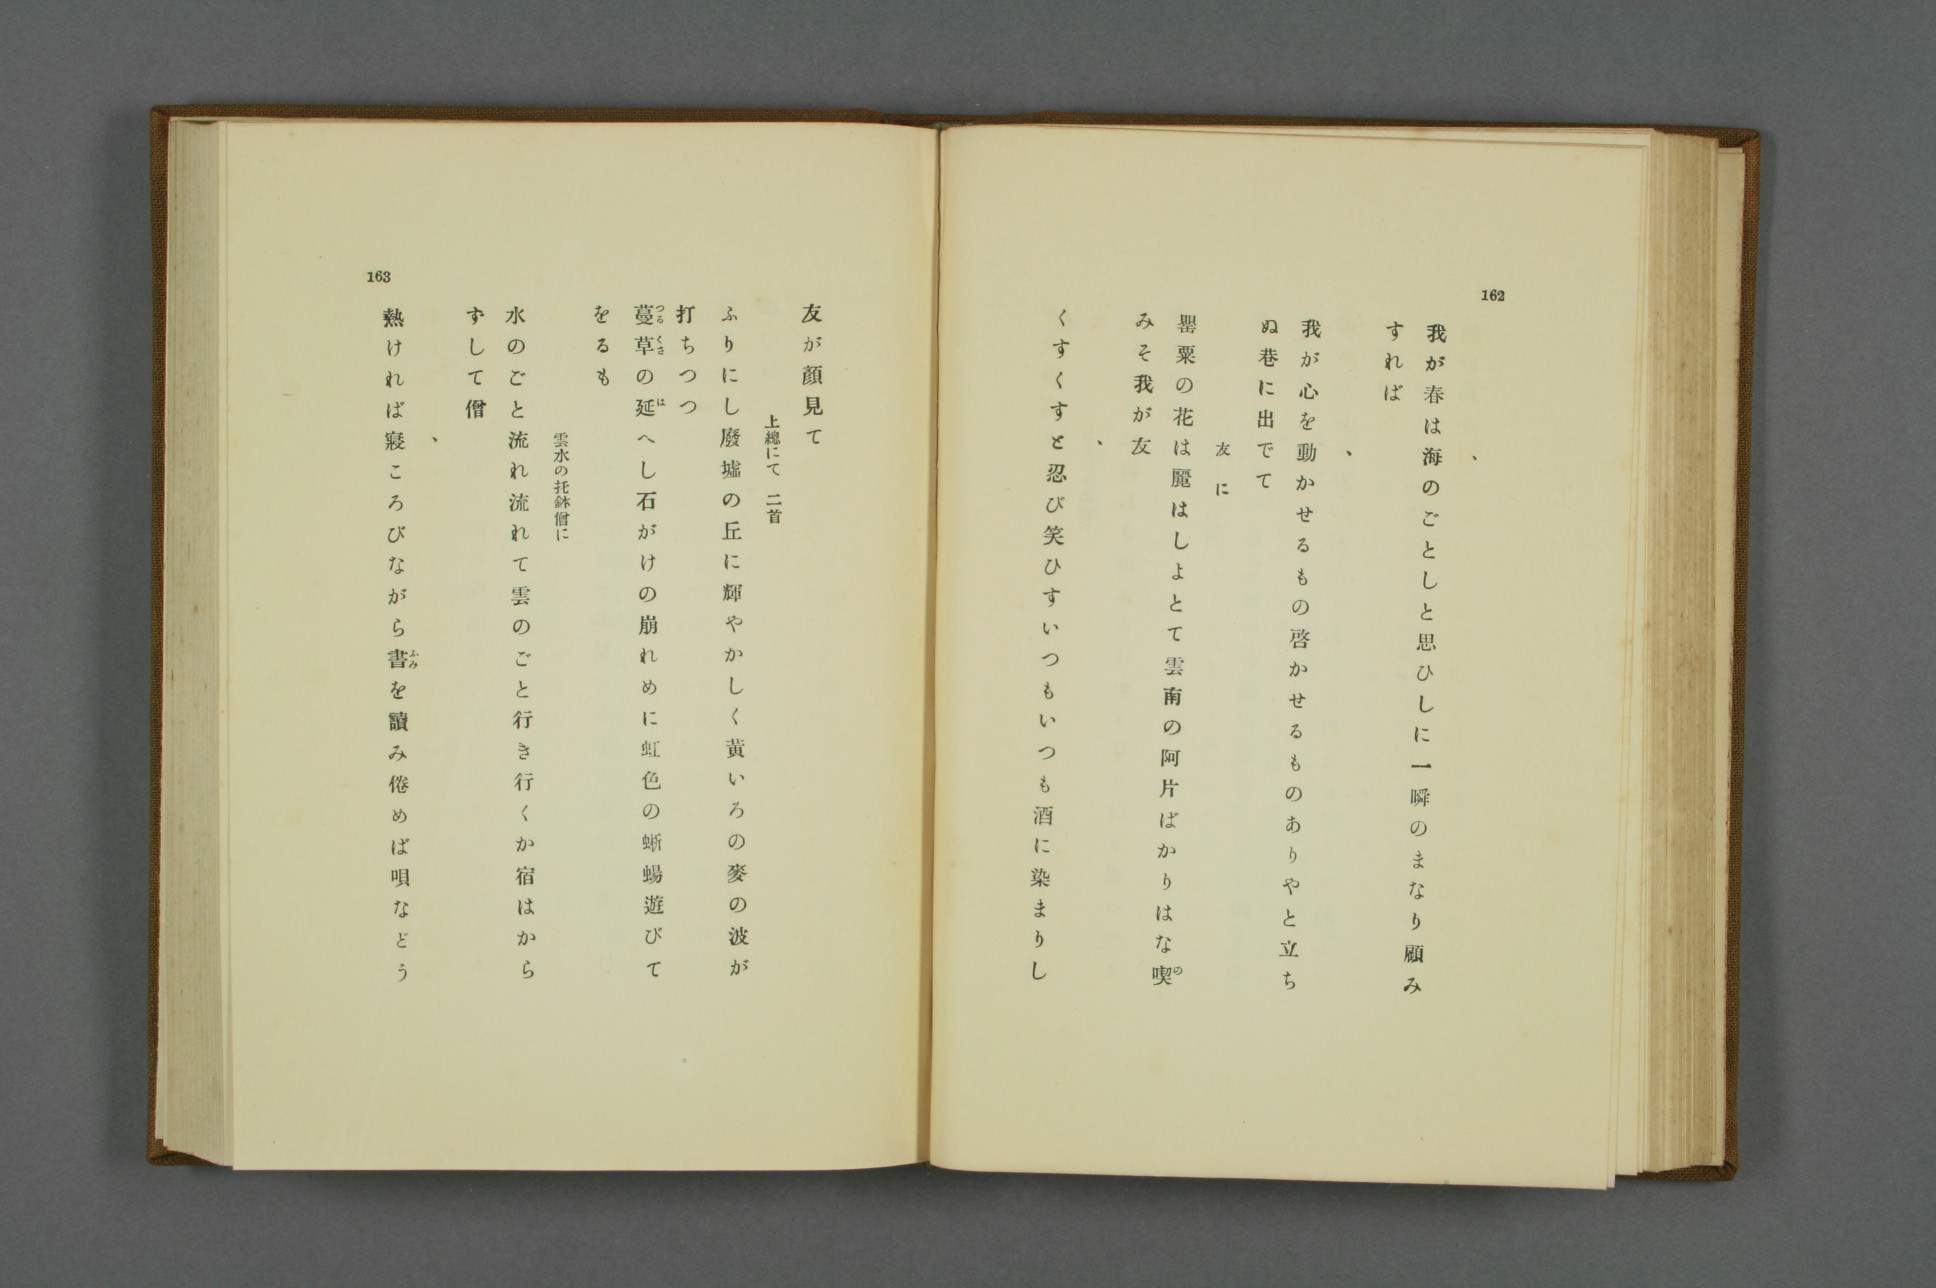 162
、
我が春は海のごとしと思ひしに一瞬のまなり顧み
すれば
、
我が心を動かせるもの啓かせるものありやと立ち
ぬ巷に出でて
友に
罌粟の花は麗はしよとて雲南の阿片ばかりはな喫の
みそ我が友
、
くすくすと忍び笑ひすいつもいつも酒に染まりし
163
友が顔見て
上總にて 二首
ふりにし廢墟の丘に輝やかしく黄いろの麥の波が
打ちつつ
蔓つる草くさの延はへし石がけの崩れめに虹色の蜥蜴遊びて
をるも
雲水の托鉢僧に
水のごと流れ流れて雲のごと行き行くか宿はから
ずして僧
、
熱ければ寢ころびながら書ふみを讀み倦めば唄などう